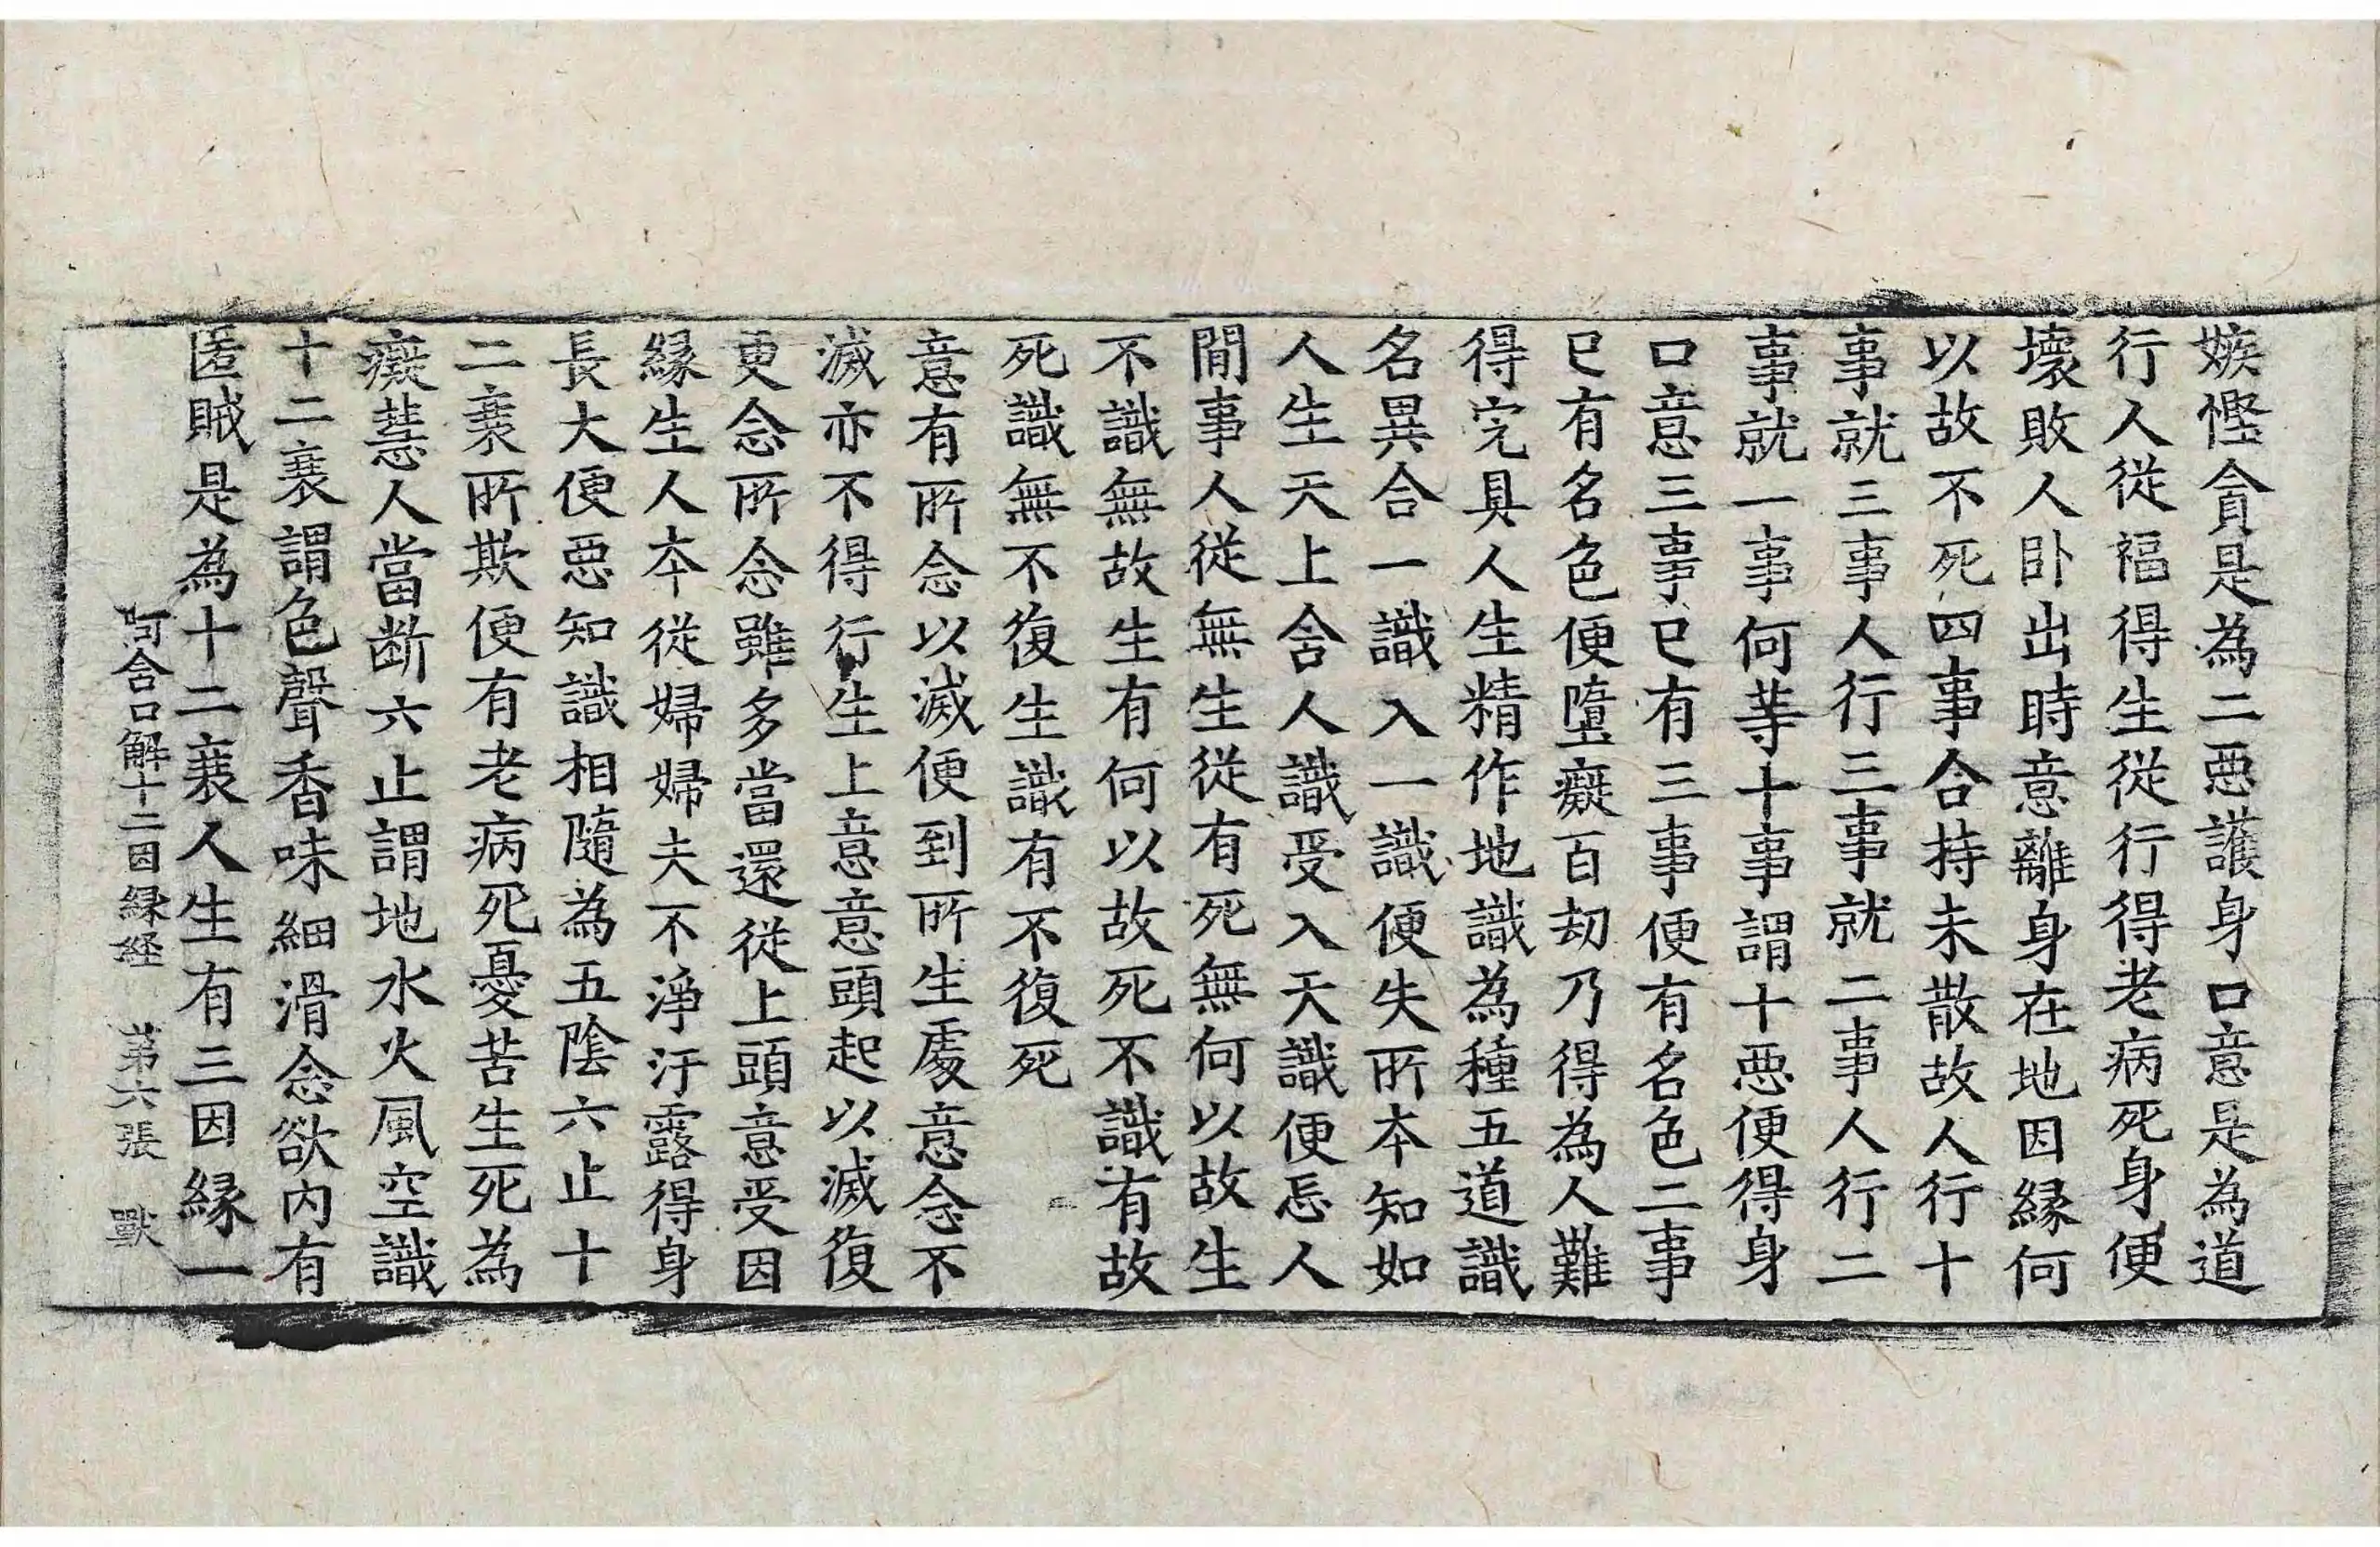 嫉慳貪是為二惡護身口意是為道
行人從福得生從行得老病死身便
壞敗人卧出時意離身在地因緣何
以故不死四事合持未散故人行十
事就三事人行三事就二事人行二
事就一事何等十事謂十惡便得身
口意三事已有三事便有名色二事
已有名色便墮癡百劫乃得為人難
得完具人生精作地識為種五道識
名異合一識入一識便失所本知如
人生天上舍人識受入天識便忘人
閒事人從無生從有死無何以故生
不識無故生有何以故死不識有故
死識無不復生識有不復死
意有所念以滅便到所生處意念不
滅亦不得行生上意意頭起以滅復
更念所念雖多當還從上頭意受因
緣生人本從婦婦夫不淨汙露得身
長大便惡知識相隨為五陰六止十
二衰所欺便有老病死憂苦生死為
癡慧人當断六止謂地水火風空識
十二衰謂色聲香味細滑念欲內有
匿賊是為十二衰人生有三因緣一
阿含口解十二因緣経 第六張 獸